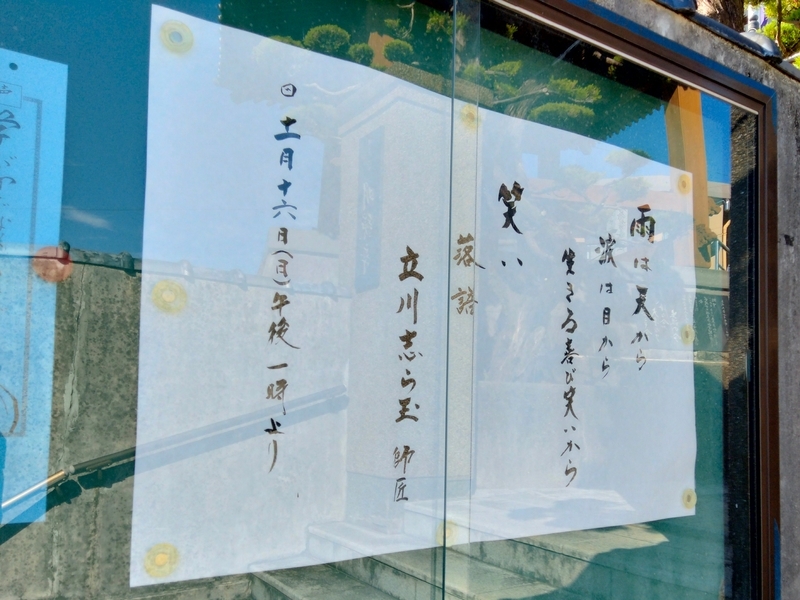 雨は天から
涙は目から
生きる喜び笑いから
笑い
落語
立川志ら玉 師匠
日 十一月十六日(日)午後一時より